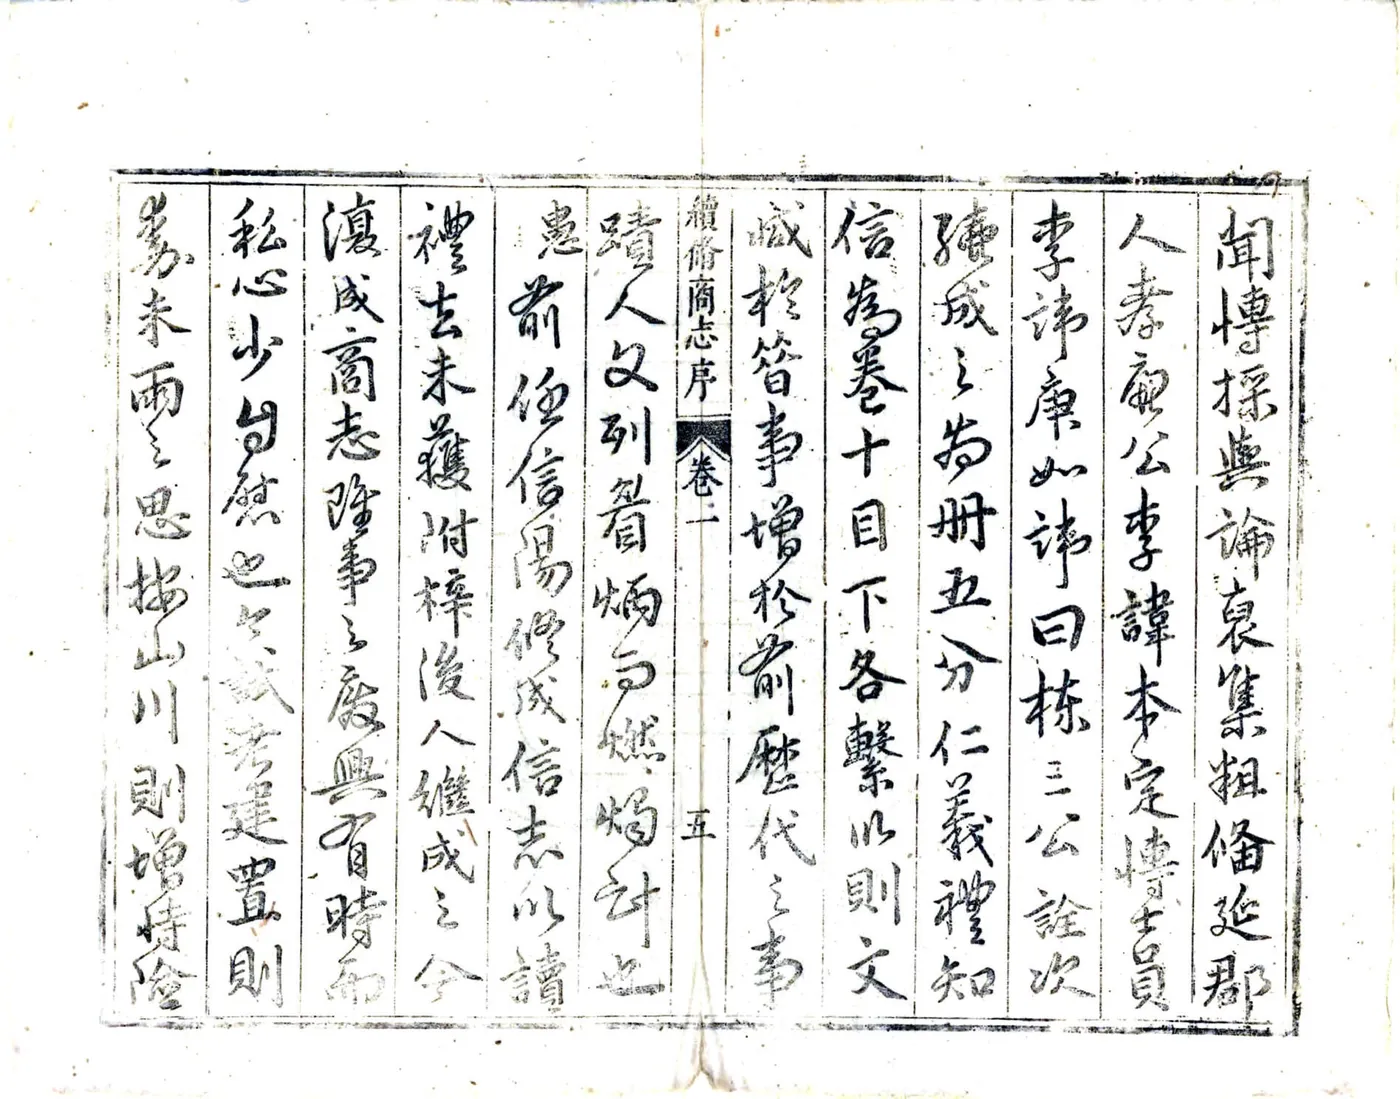 聞博採輿論裒集粗備延郡
人孝廉公李諱本定博士員
李諱庚如諱曰棟三公詮次
纏成之為冊五分仁義禮知
信為卷十目下各繫以則文
減於昔事增於前歷代之事
蹟人文列眉炳而燃燭計也
續脩商志序
卷一
五
惠前任信陽修成信志以讀
禮去未獲附梓後人繼成之今
復成商志雖事之廢興有時而
私心少自慰也今試考建置則
未雨之思按山川則增恃險